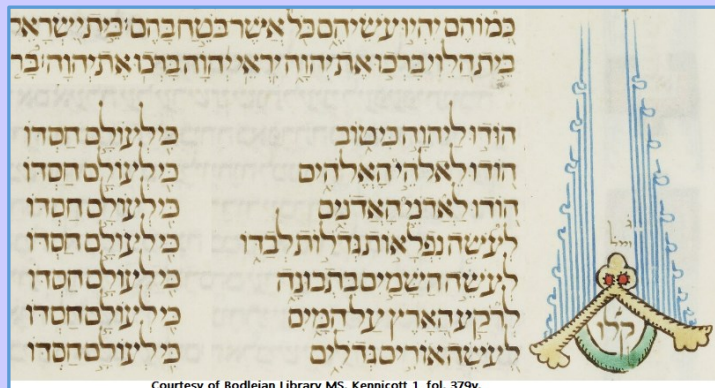 כמוהם יהיו עשיהם כל אשר בטח בהם בית ישראל
בית הלוי ברכו את יהוה יראי יהוה ברכו את יהוה בר
הודו ליהוה כי טוב כי לעולם חסדו
הודו לאלהי האלהים כי לעולם חסדו
הודו לאדני האדנים כי לעולם חסדו
לעשה נפלאות גדלות לבדו כי לעולם חסדו
לעשה השמים בתכונה כי לעולם חסדו
לרקע הארץ על המים כי לעולם חסדו
לעשה אורים גדלים כי לעולם חסדו
קלו
Courtesy of Bodleian Library MS. Kennicott 1, fol. 379v.